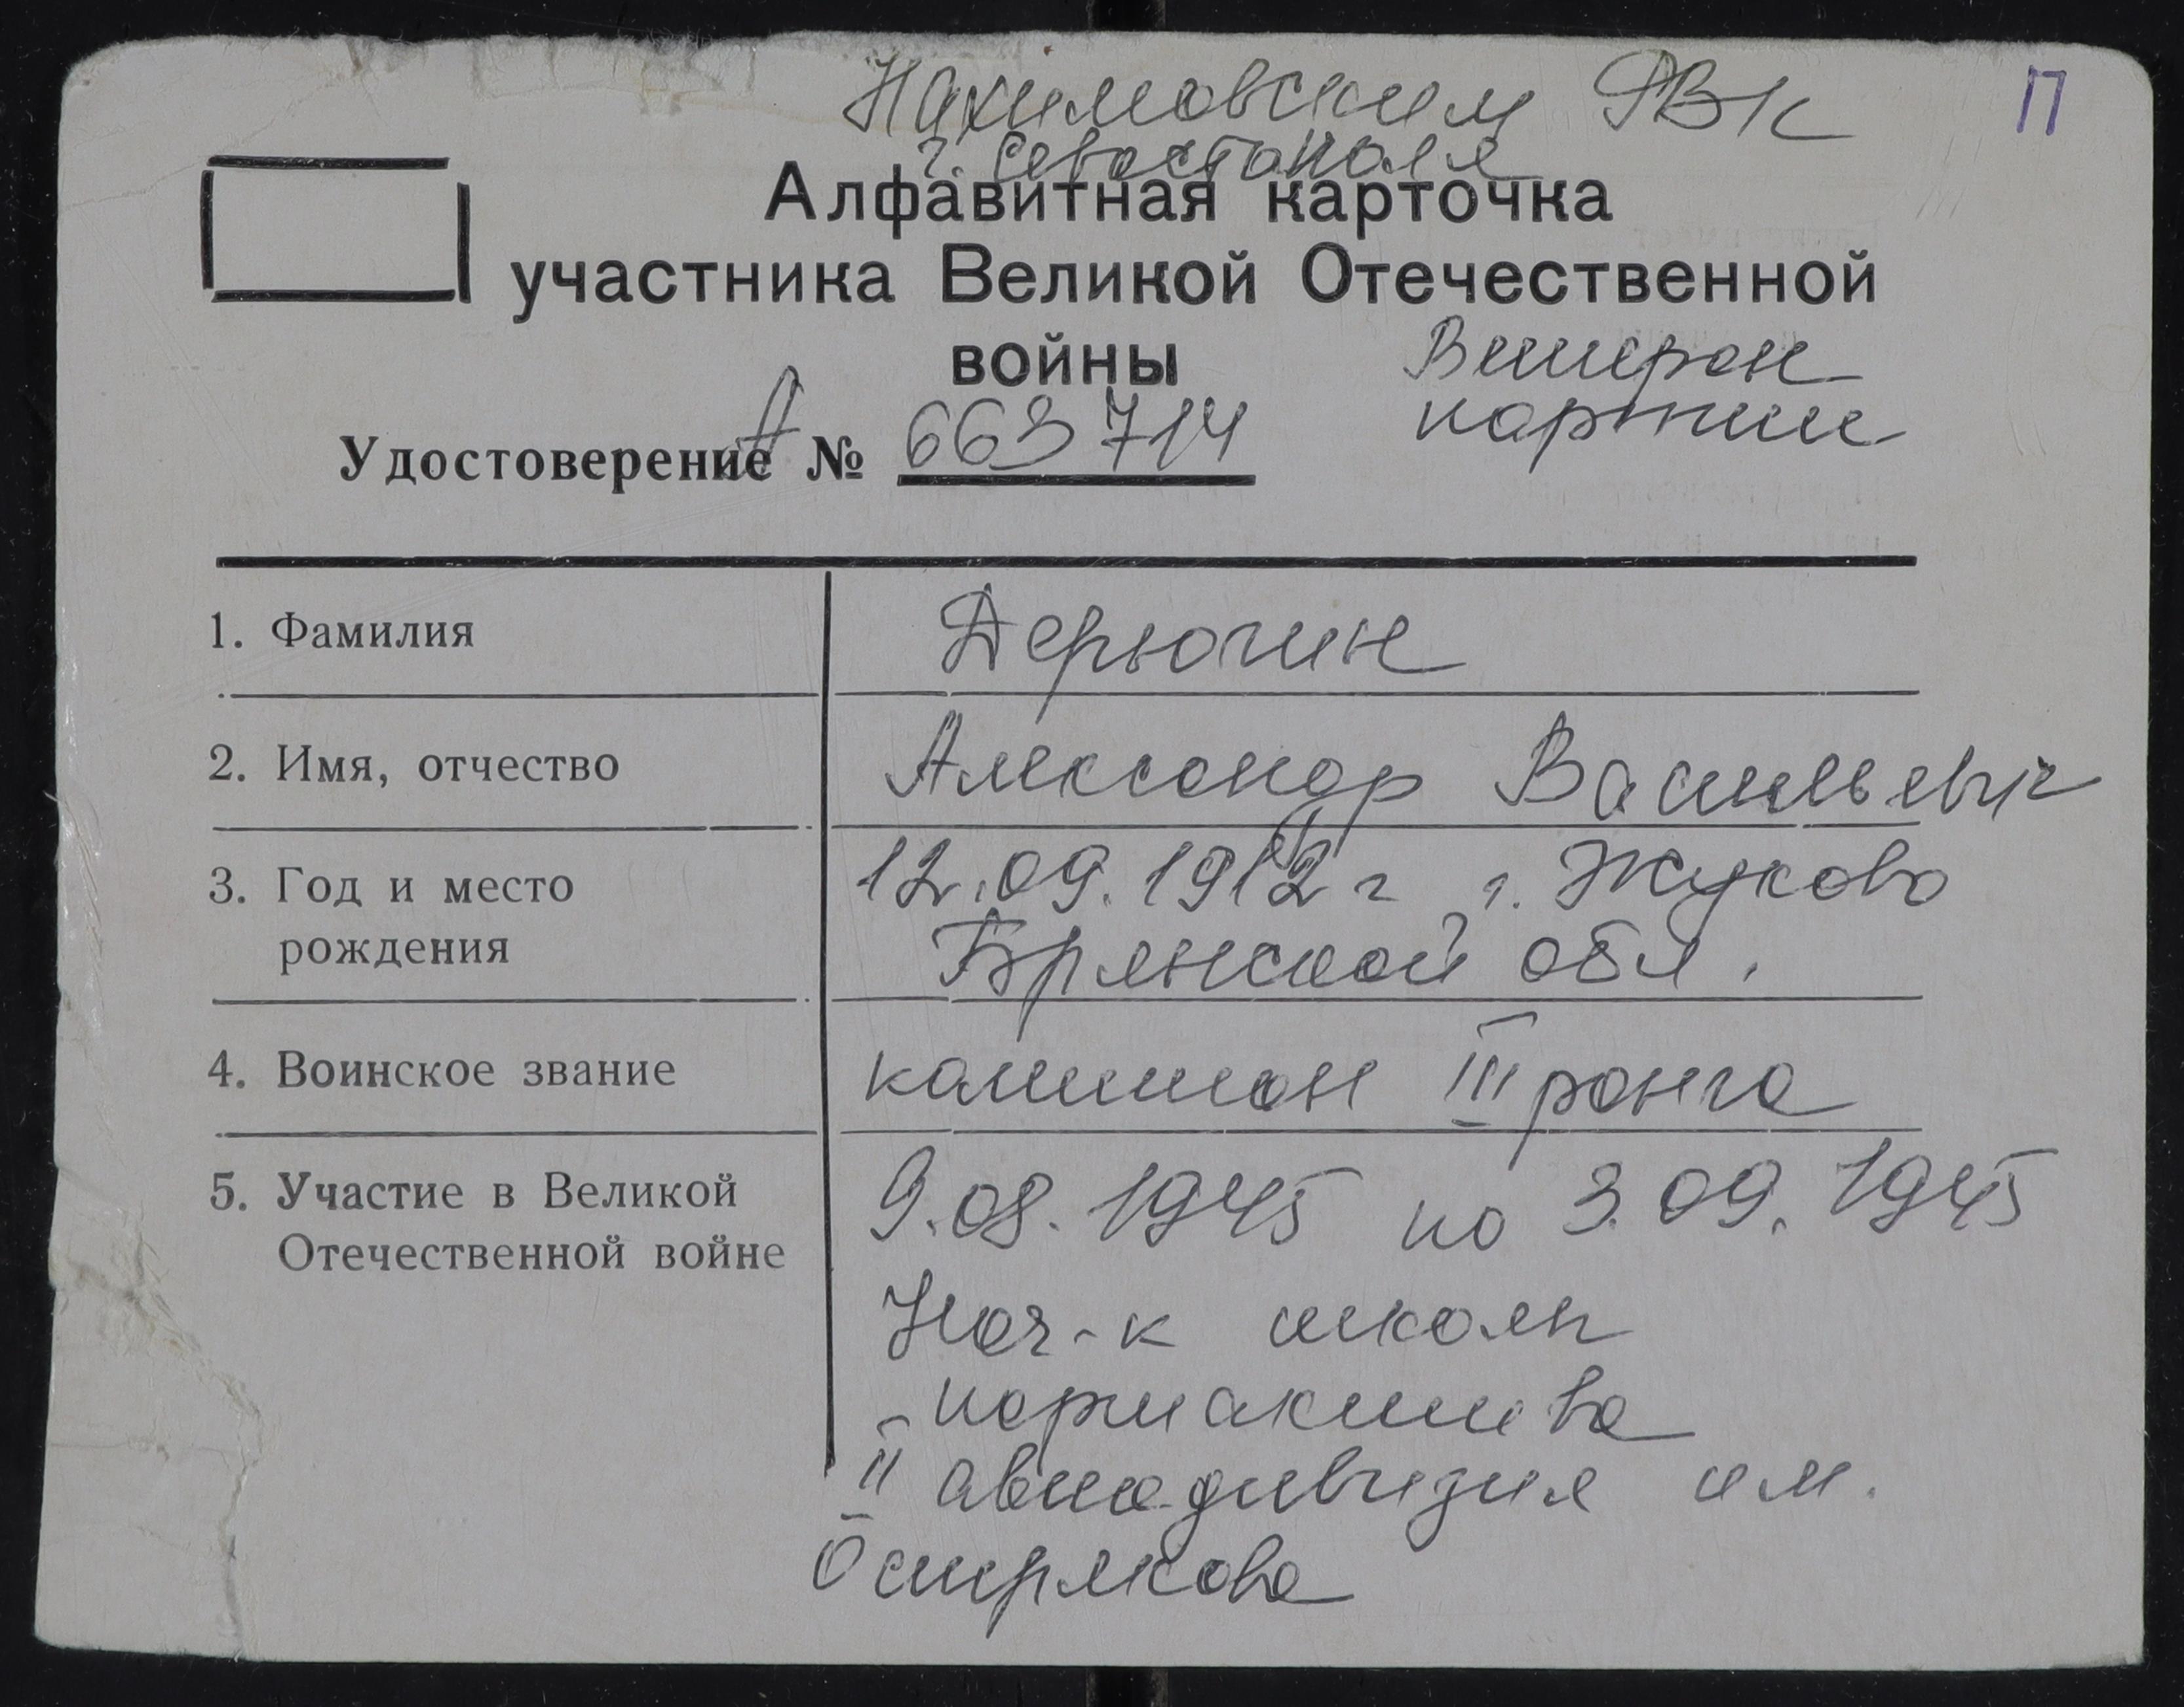 Нахимовским РВК П
г. Севастополя
Алфавитная карточка
участника Великой Отечественной
войны Ветеран
партии
Удостоверение А № 663714
1. Фамилия Дерюгин
2. Имя, отчество Александр Васильевич
3. Год и место 12.09.1912 г г. Жуково
рождения Брянской обл.
4. Воинское звание капитан III ранга
5. Участие в Великой 9.08.1945 по 3.09.1945
Отечественной войне
Нач-к школы
II авиадивизия им.
Острякова